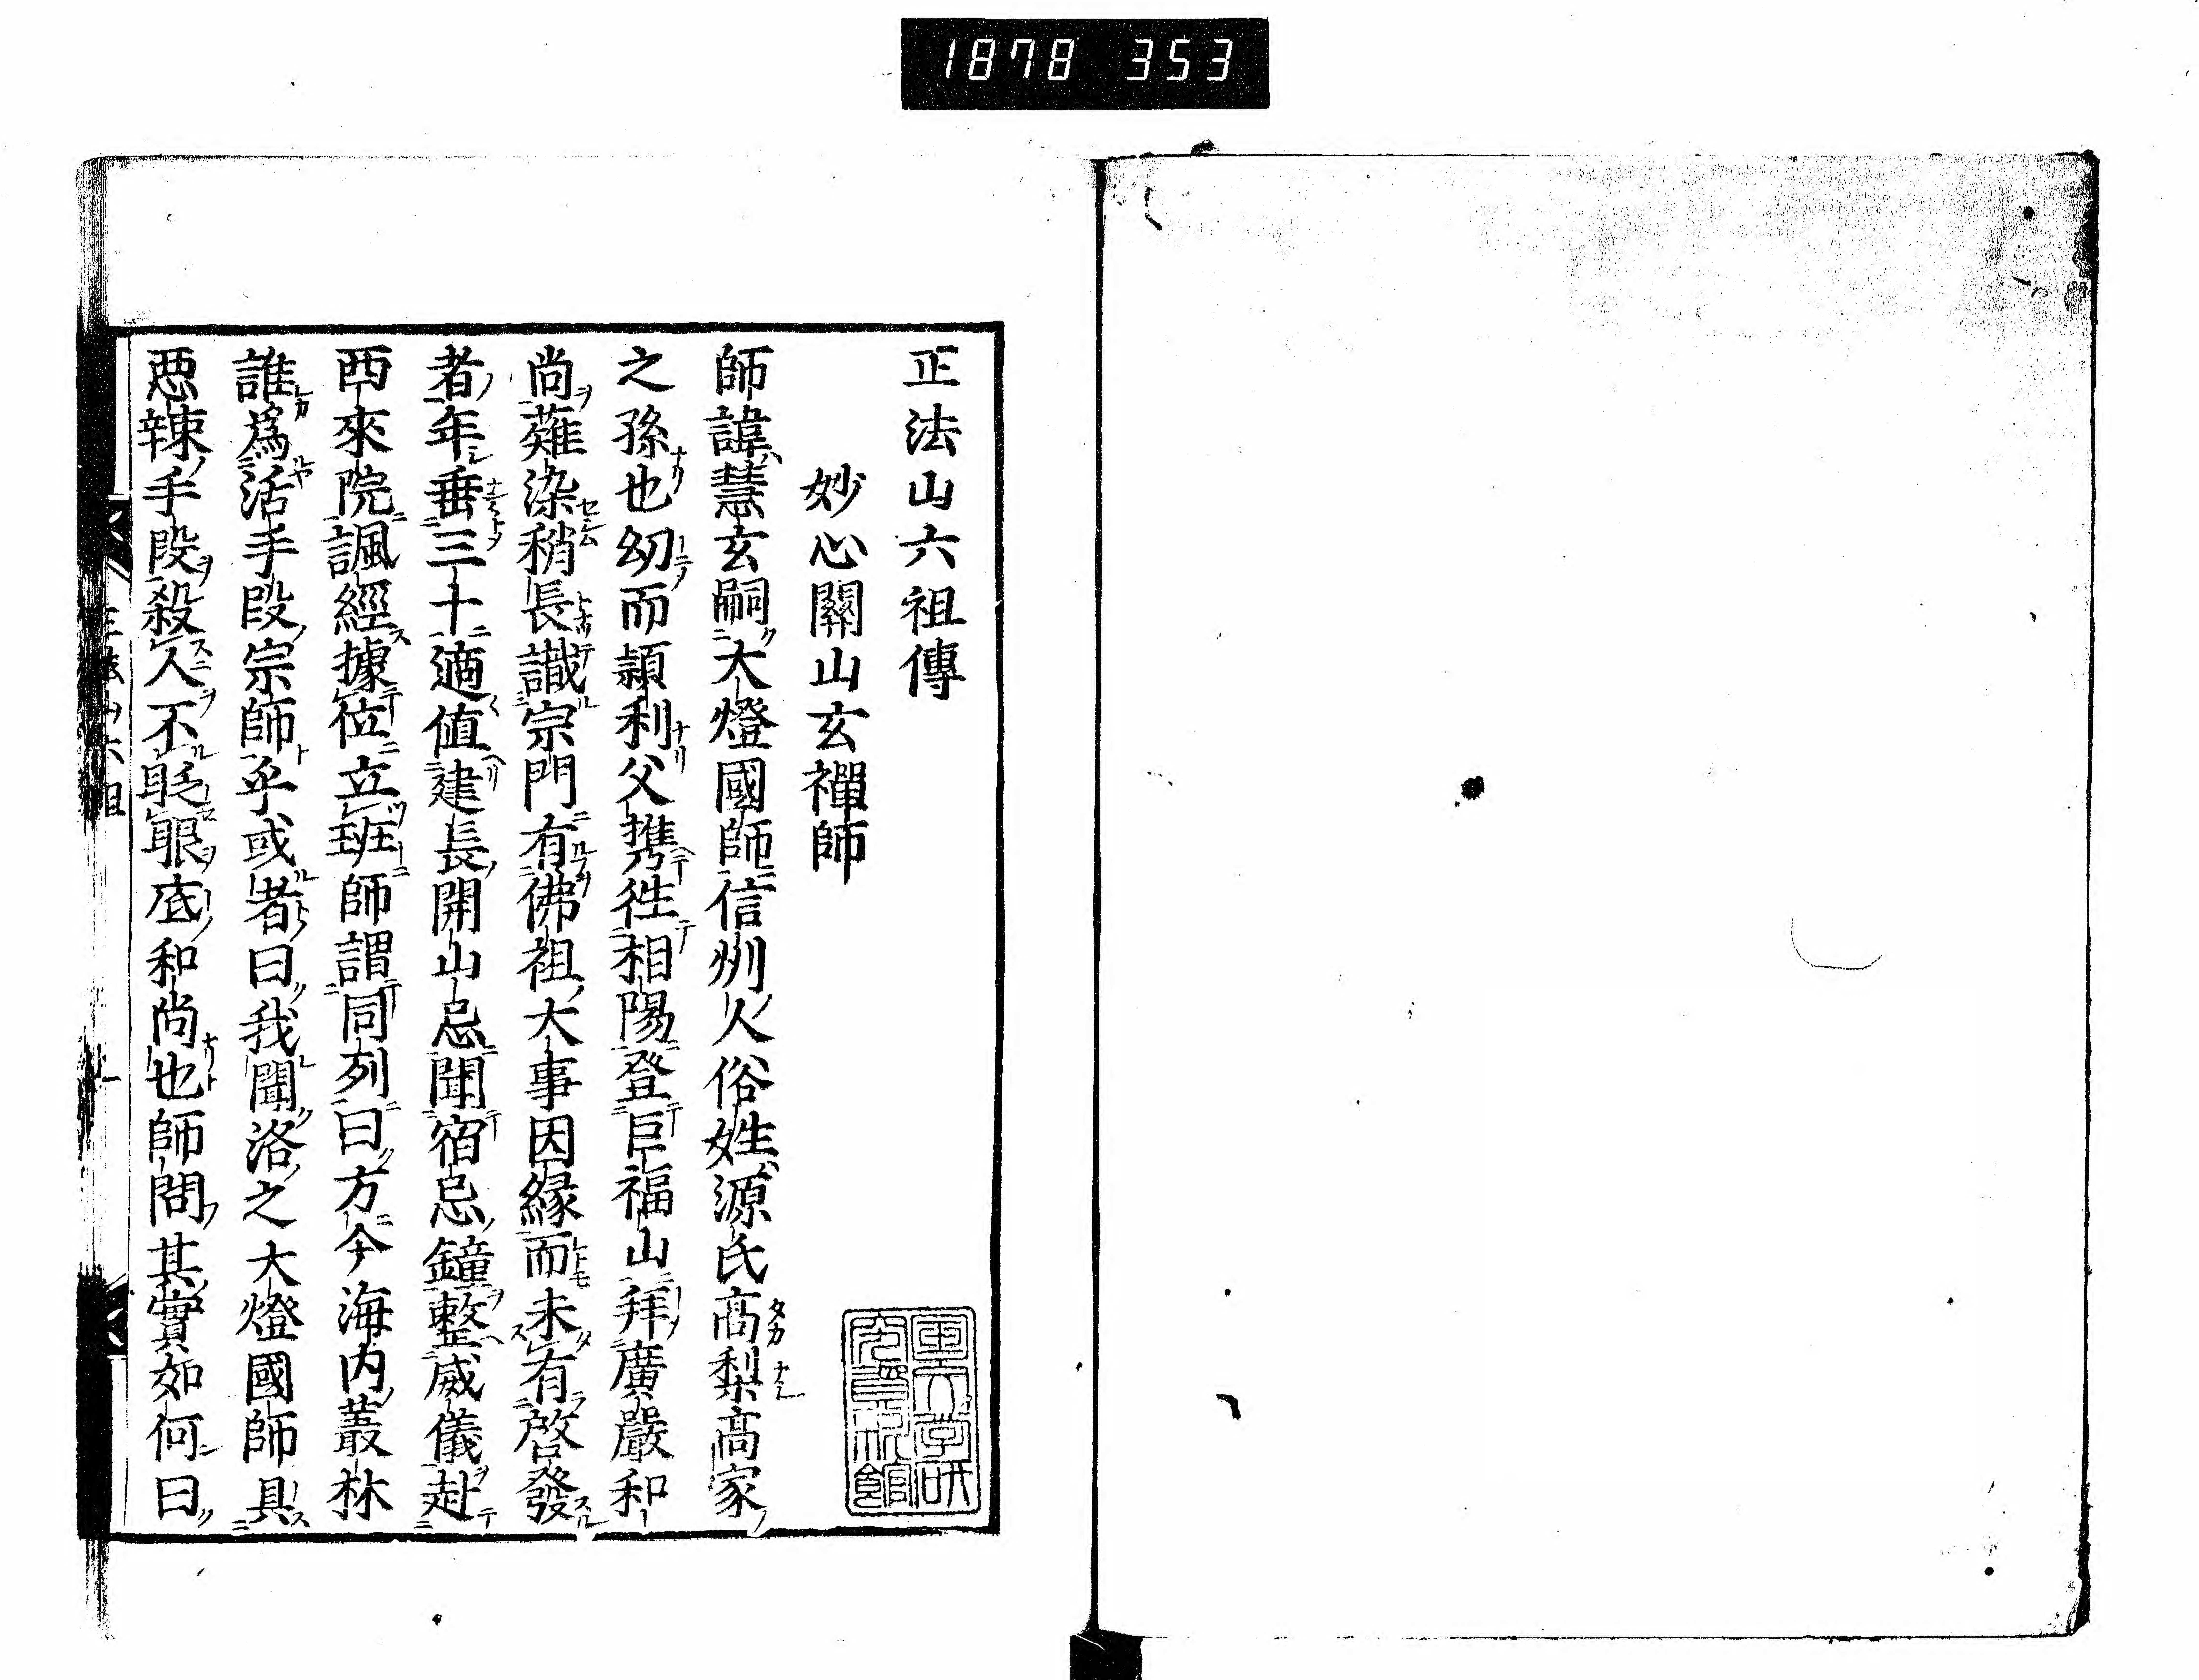 1878 353
正法山六祖傳
妙心關山玄禪師
師諱慧玄嗣大燈國師信州人俗姓源氏髙梨髙家
之孫也幼而頴利父携徃相陽登巨福山拜廣嚴和
尚薙染稍長識宗門有佛祖大事因緣而未有啓發
者年垂三十適値建長開山忌聞宿忌鐘整威儀赴
西來院諷經據位立班師謂同列曰方今海内叢林
誰爲活手段宗師乎或者曰我聞洛之大燈國師具
悪辣手段殺人不眨眼底和尚也師問其實如何曰